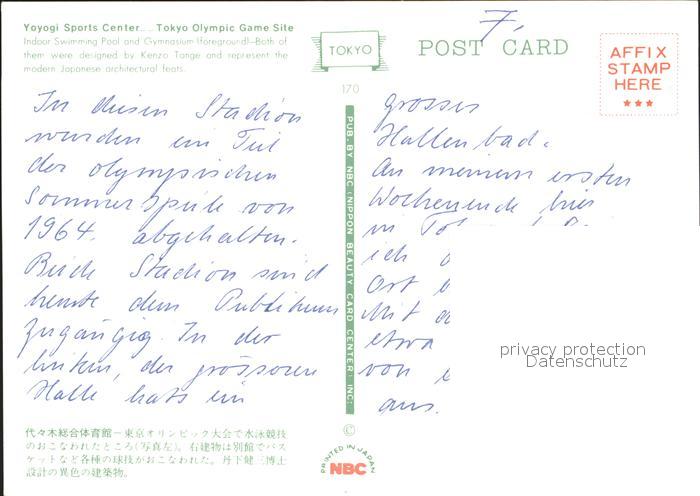 Yoyogi Sports Center.... Tokyo Olympic Game Site
Indoor Swimming Pool and Gymnasium (foreground)—Both of
them were designed by Kenzo Tange and represent the
modern Japanese architectural feats.
TOKYO
7,
POST CARD
AFFIX
STAMP
HERE
★★★
170
In diesen Stadion
wurden ein Teil
der olympischen
Sommerspiele von
1964. abgehalten.
Beide Stadion sind
heute dem Publikum
zugängig. In der
linken, der grösseren
Halle hats ein
PUB. BY NBC (NIPPON BEAUTY CARD CENTER) INC.
grosses
Hallenbad.
An meinem ersten
Wochenende hier
in
ich
Ort
Mit
etwa
von
aus.
privacy protection
Datenschutz
代々木総合体育館－東京オリンピック大会で水泳競技
のおこなわれたところ(写真左)。右建物は別館でバス
ケットなど各種の球技がおこなわれた。丹下健三博士
設計の異色の建築物。
©
PRINTED IN JAPAN
NBC